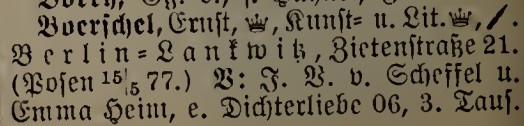 Boerschel, Ernst, ♛, Kunst= u. Lit.♛, /.
Berlin=Lankwitz, Zietenstraße 21.
(Posen 15/5 77.) B: J. V. v. Scheffel u.
Emma Heim, e. Dichterliebe 06, 3. Taus.